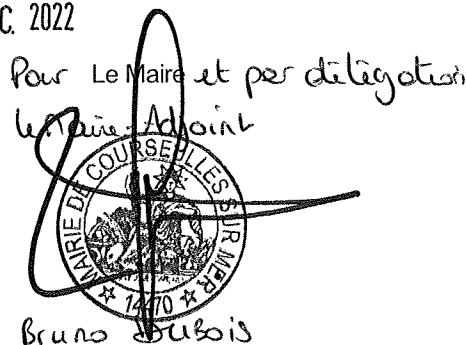 C. 2022
Pour Le Maire et par délégation
le Maire-Adjoint
MAIRIE DE COURSEULLES SUR MER
14470
Bruno DUBOIS